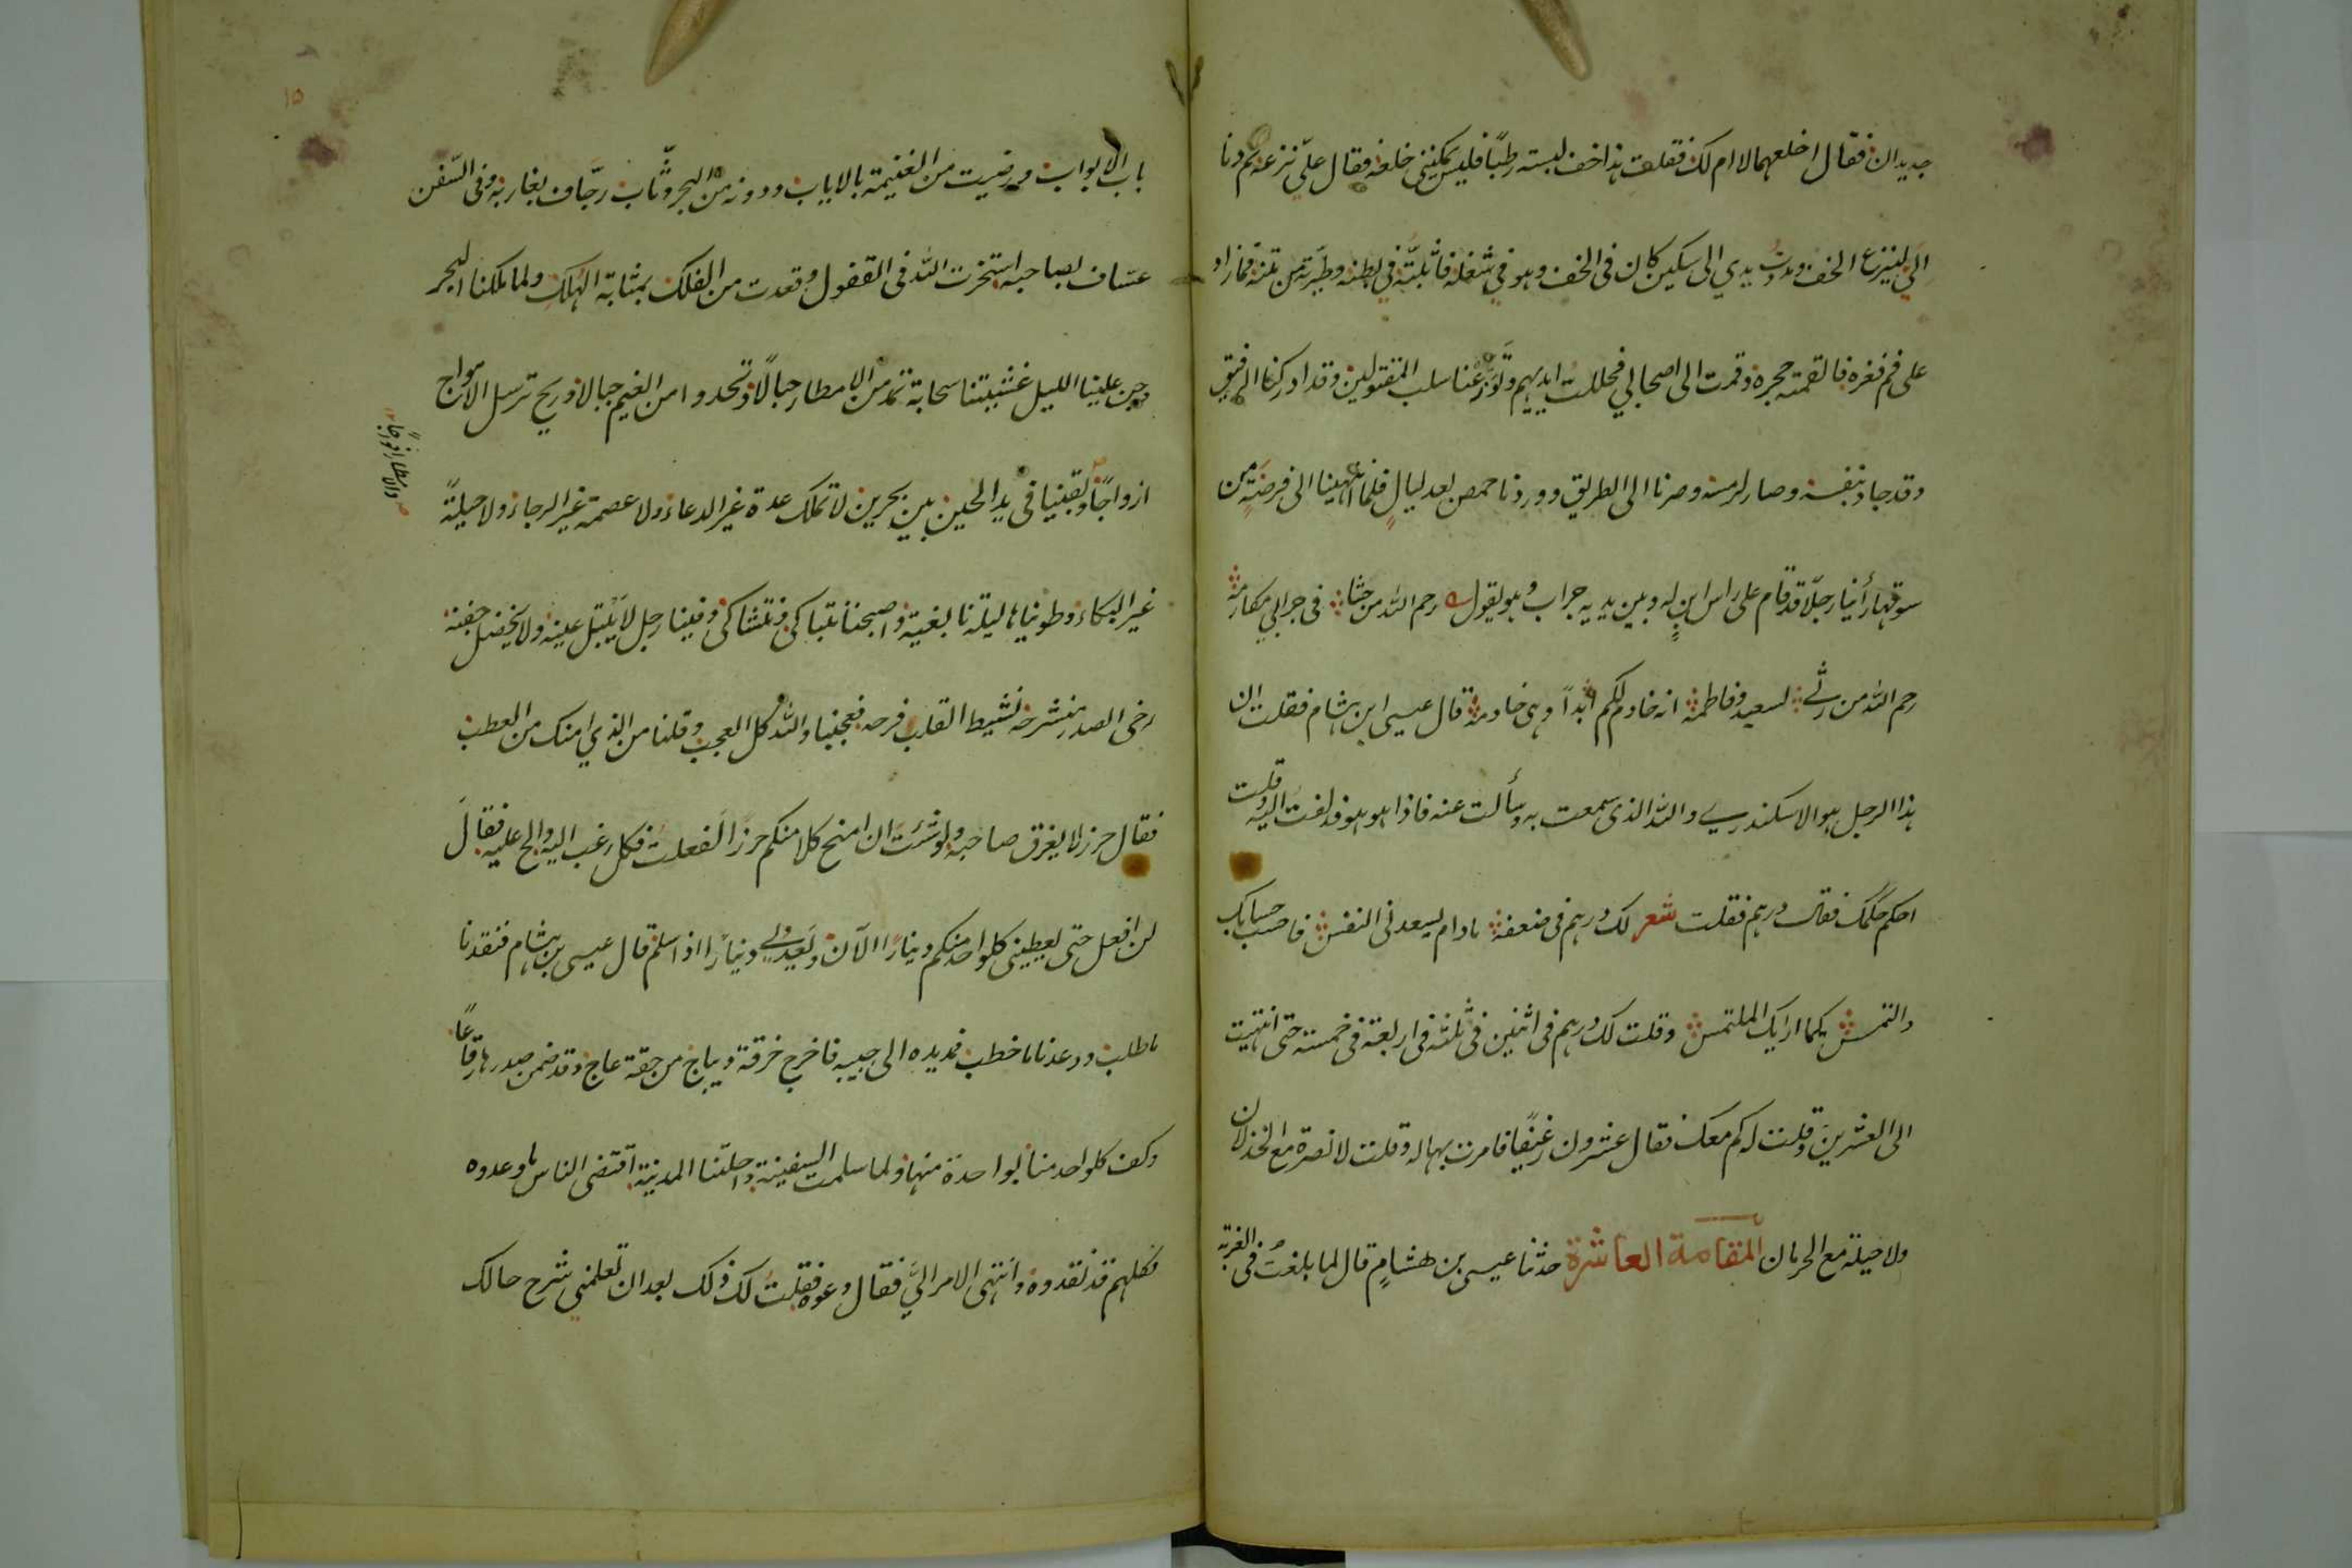 جديدان فقال اخلعهما لا ام لك فقلت هذا خف لبسته رطبًا فليس يمكننى خلعه فقال علىّ نزعه ثم دنا
الىّ لينزع الخف ومددتُ يدي الى سكين كان فى الخف وهو في شغله فاثبتّه في بطنه وطيرته من متنه فما زاد
على فم فغره فالقمته حجره وقمت الى اصحابي فحللت ايديهم وتوزّعنا سلب المقتولين وقد ادركنا الرفيق
وقد جاد بنفسه وصار لرمسه وصرنا الى الطريق ووردنا حمص بعد ليالٍ فلما انتهينا الى فرضةٍ من
سوقها رأينا رجلًا قد قام على راس ابنٍ له وبين يديه جراب وهو يقول رحم الله من حثا فى جرابي مكارمه
رحم الله من رثى لسعيد وفاطمه انه خادم لكم ابداً وهى خادمه قال عيسى ابن هشام فقلت ان
هذا الرجل هو الاسكندري والله الذى سمعت به وسألت عنه فاذا هو هو فدلفت اليه وقلت
احكم حكمك فقال درهم فقلت شعر لك درهم فى ضعفه مادام يسعدنى النفس فاحسب حسابك
والتمس كيما ارايك الملتمس وقلت لك درهم فى اثنين فى ثلثه فى اربعة فى خمسة حتى انتهيت
الى العشرين وقلت له كم معك فقال عشرون رغيفًا فامرت بها له وقلت لا نصرة مع الخذلان
ولا حيلة مع الحرمان المقامة العاشرة حدثنا عيسى بن هشامٍ قال لما بلغتُ فى الغربة
١٥
باب الابواب ورضيت من الغنيمة بالاياب ودونه من البحر وثّاب رجّاف بغاربه وفى السّفن
عسّاف بصاحبه استخرت الله فى القفول وقعدت من الفلك بمثابة الهلك ولما ملكنا البحر
وجن علينا الليل غشيتنا سحابة تمد من الامطار حبالًا وتحدوا من الغيم جبالا وريح ترسل الامواج
ازواجًا وبقينا فى يد الحين بين بحرين لا نملك عدة غير الدعاء ولا عصمة غير الرجاء ولا حيلةً
والامطار افواجًا
غير البكاء وطويناها ليلة نابغية واصبحنا نتباكى ونتشاكى وفينا رجل لا يبتل عينه ولا يخضل جفنه
رخى الصدر منشرحه نشيط القلب فرحه فعجبنا والله كل العجب وقلنا من الذي امنك من العطب
فقال حرز لا يغرق صاحبه ولو شئت ان امنح كلا منكم حرزًا لفعلت فكل رغب اليه والح عليه فقالَ
لن افعل حتى يعطينى كلواحد منكم دينارًا الآن ويعدنى دينارًا اذا سلم قال عيسى بن هشام فنقدنا
ما طلب ووعدنا ما خطب فمد يده الى جيبه فاخرج خرقة ديباج من حقة عاج وقد ضمن صدرها رقاعًا
وكف كلواحد منا بواحدة منها ولما سلمت السفينة واحلتنا المدينة اقتضى الناس ما وعدوه
فكلهم قد نقدوه وانتهى الامر الىّ فقال دعوه فقلت لك ذلك بعد ان تعلمني شرح حالك